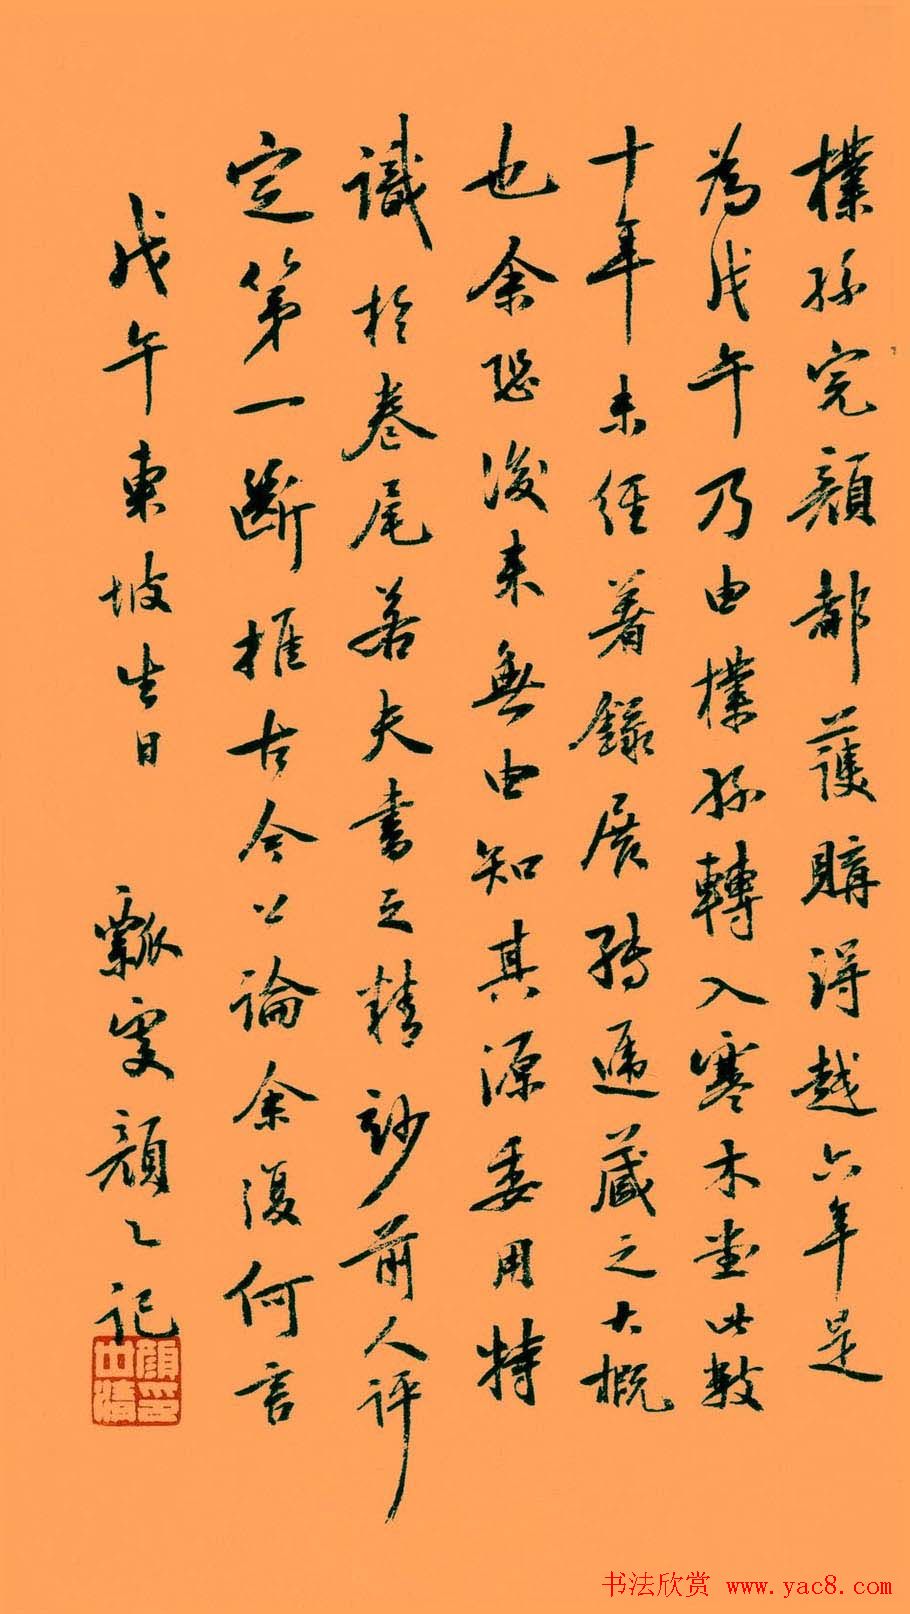 樸孫完顏都護購得越六年是
為戊午乃由樸孫轉入寒木堂此數
十年未經著錄展轉遞藏之大概
也余恐後來無由知其源委用特
識於卷尾若夫書之精妙前人評
定第一斷推古今公論余復何言
戊午東坡生日 瓢叟顏之記
顏世清印
书法欣赏 www.yac8.com